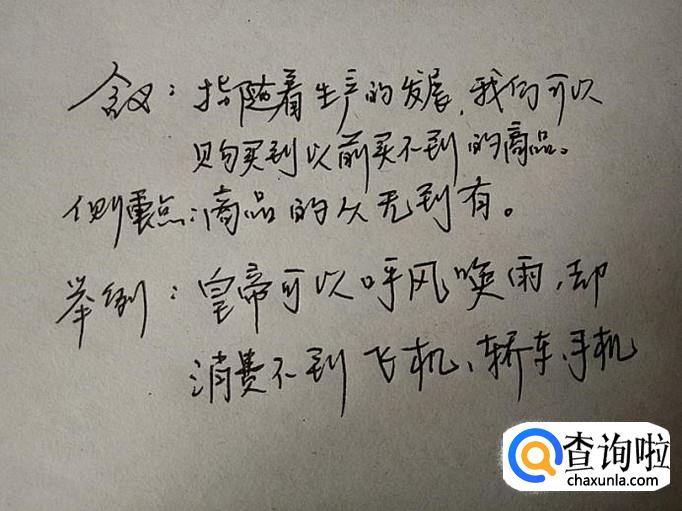 含义：指随着生产的发展，我们可以
购买到以前买不到的商品。
侧重点：商品的从无到有。
举例：皇帝可以呼风唤雨，却
消费不到飞机、轿车、手机
查询啦
chaxunla.com